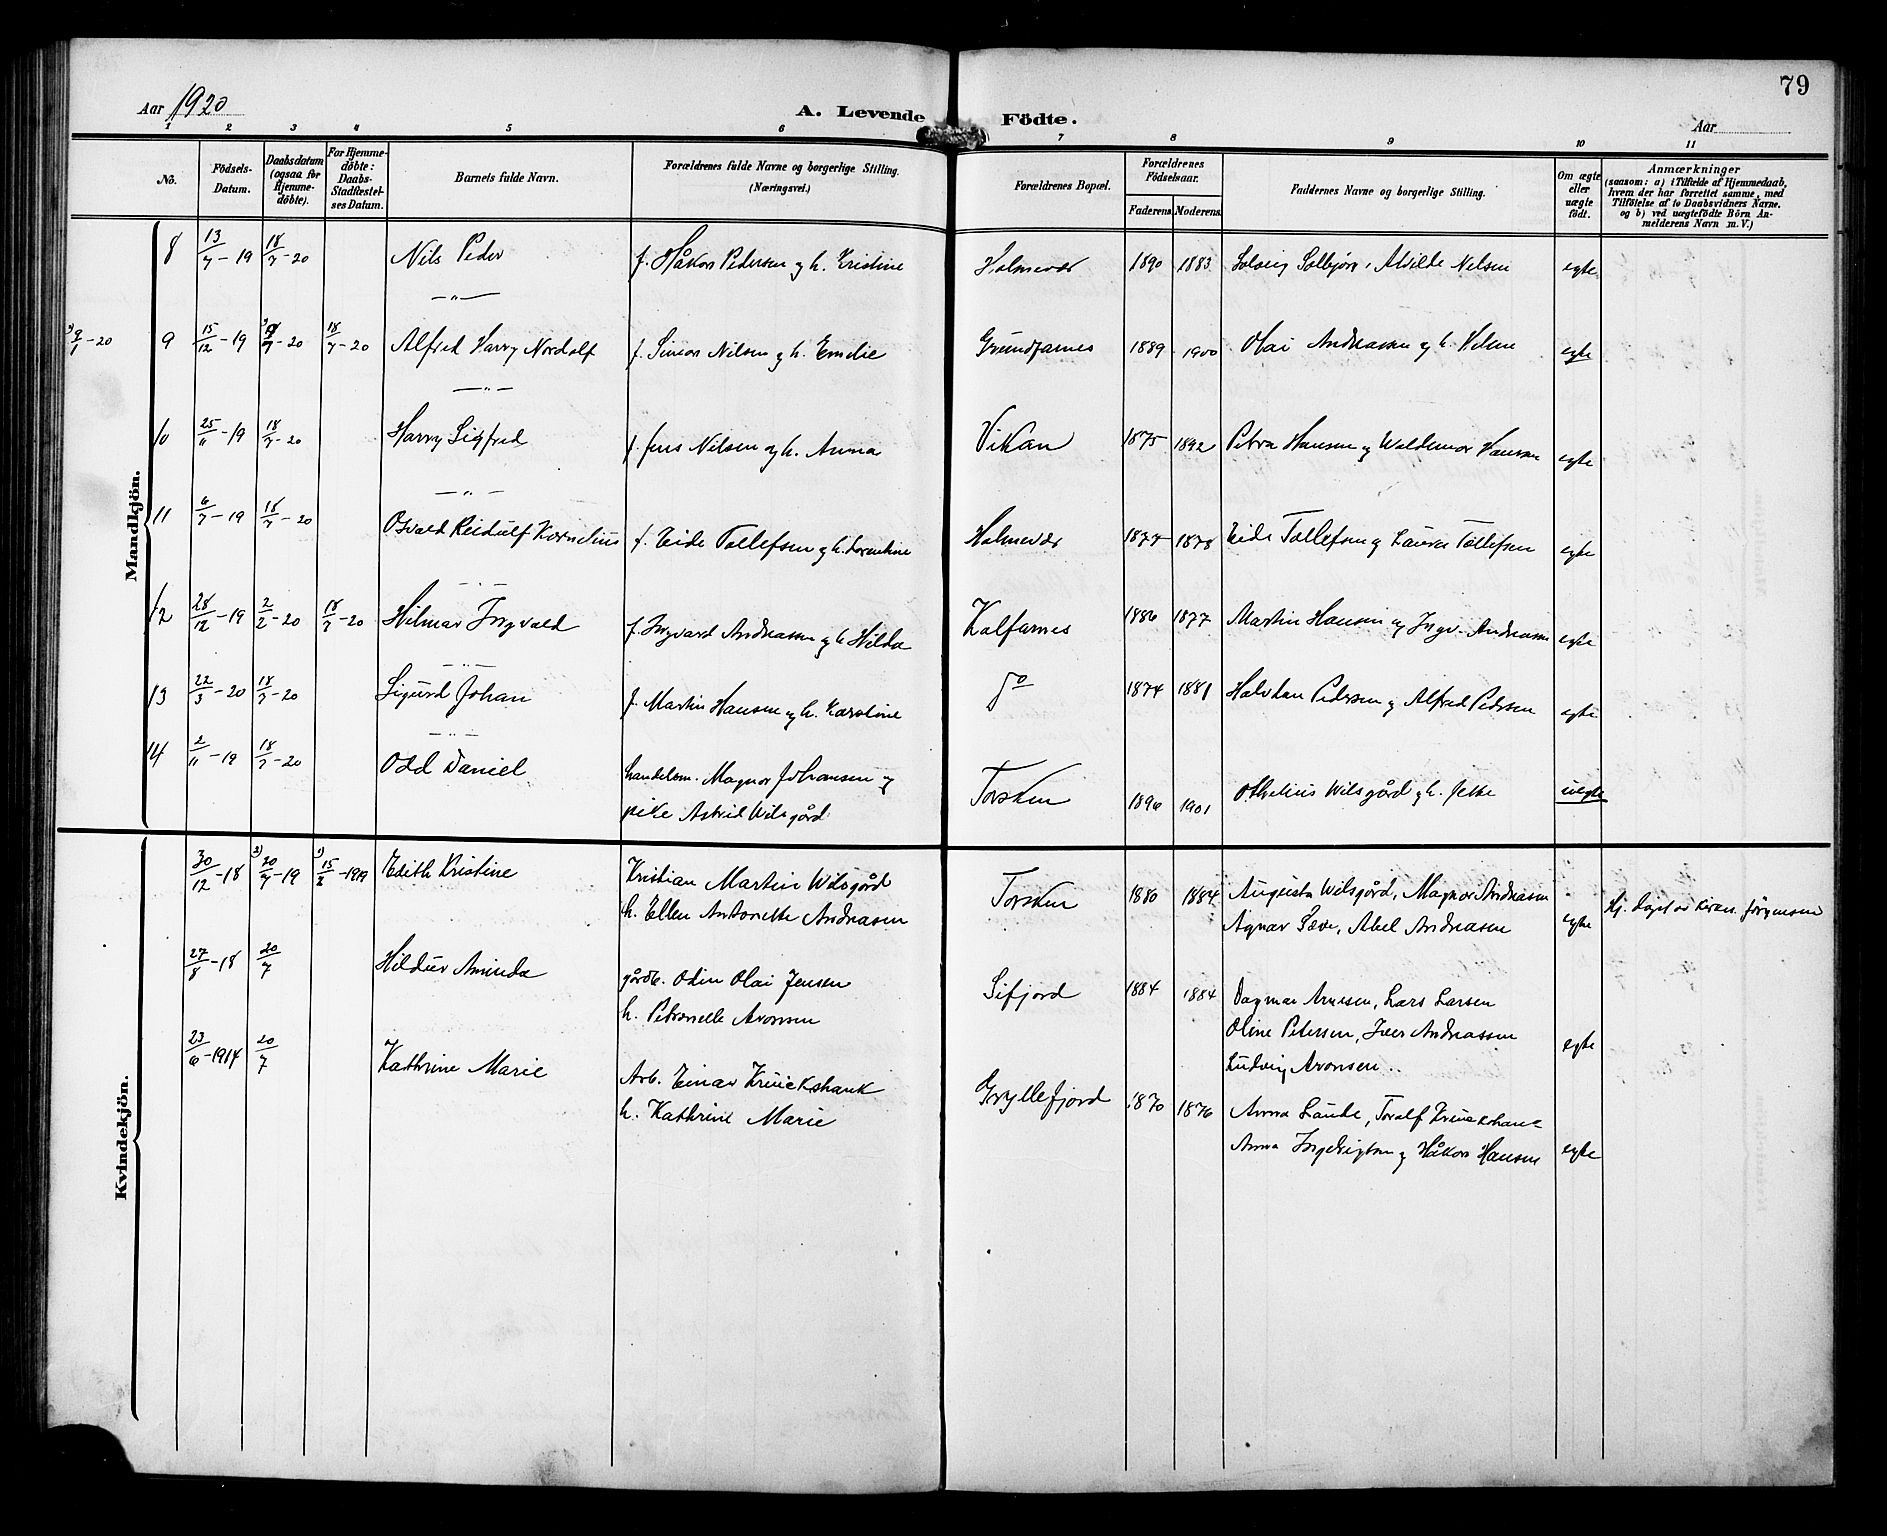 79
Aar 1920
A. Levende Födte.
Aar
1 2 3 4 5 6 7 8 9 10 11
No.
Födsels-Datum.
Daabsdatum (ogsaa for Hjemme-döbte).
For Hjemme-döbte: Daabs-Stadfæstel-ses Datum.
Barnets fulde Navn.
Forældrenes fulde Navne og borgerlige Stilling. (Næringsvei.)
Forældrenes Bopæl.
Forældrenes Födselsaar.
Faderens Moderens
Faddernes Navne og borgerlige Stilling.
Om ægte eller uægte födt.
Anmærkninger
(saasom: a) i Tilfælde af Hjemmedaab,
hvem der har forrettet samme, med
Tilföielse af to Daabsvidners Navne.
og b) ved uægtefödte Börn An-
melderens Navn m. V.)
Mandkjön.
8 13/7-19 18/7-20 Nils Peder f. Håkon Pedersen og h. Kristine Holmevær 1890 1883 Solveig Solbjørg, Alvilde Nilsen egte
—"—
9/1-20 9 15/12-19 18/7-20 Alfred Harry Nordolf f. Simon Nilsen og h. Emelie Grundfarnes 1889 1900 Olai Andreassen og h. egte
—"—
10 25/11-19 18/7-20 Harry Sigfred f. Jens Nilsen og h. Anna Vikan 1875 1892 Petra Hansen og Waldemar Hansen egte
—"—
11 6/7-19 18/7-20 Osvald Reidulf Kornelius f. Eide Tollefsen og h. Lorentine Holmevær 1877 1878 Eide Tollefsen og Laura Tollefsen egte
—"—
12 28/12-19 2/2-20 18/7-20 Hilmar Ingvald f. Ingvard Andreassen og h. Hilda Kalfarnes 1886 1877 Martin Hansen og Ingv. Andreassen egte
—"—
13 22/3-20 18/7-20 Sigurd Johan f. Martin Hansen og h. Karoline Do 1874 1881 Halvdan Pedersen og Alfred Pedersen egte
—"—
14 2/11-19 18/7-20 Odd Daniel handelsm. Magnor Johansen og Torsken 1896 1901 Othelius Wilsgård og h. Jette uegte
pike Astrid Wilsgård
Kvindekjön.
30/12-18 2) 20/7-19 1) 15/2-1919 Edith Kristine Kristian Martin Wilsgård Torsken 1880 1884 Augusta Wilsgård, Magnor Andreassen
h. Ellen Antonette Andreasen Agnar Sæve, Abel Andreasen egte Hj. døpt av Kristen Jörgensen
27/8-18 20/7 Hildur Aminda gårdb. Odin Olai Jensen Sifjord 1884 1884 Dagmar Arnesen, Lars Larsen
h. Petronelle Aronsen Oline Petersen, Iver Andreassen egte
Ludvig Aronsen
23/6-1914 20/7 Kathrine Marie Arb. Einar Kruickshank Gryllefjord 1870 1876 Anna Laude, Toralf Kruickshank
h. Kathrine Marie Anna Ingebrigtsen og Håkon Hansen egte